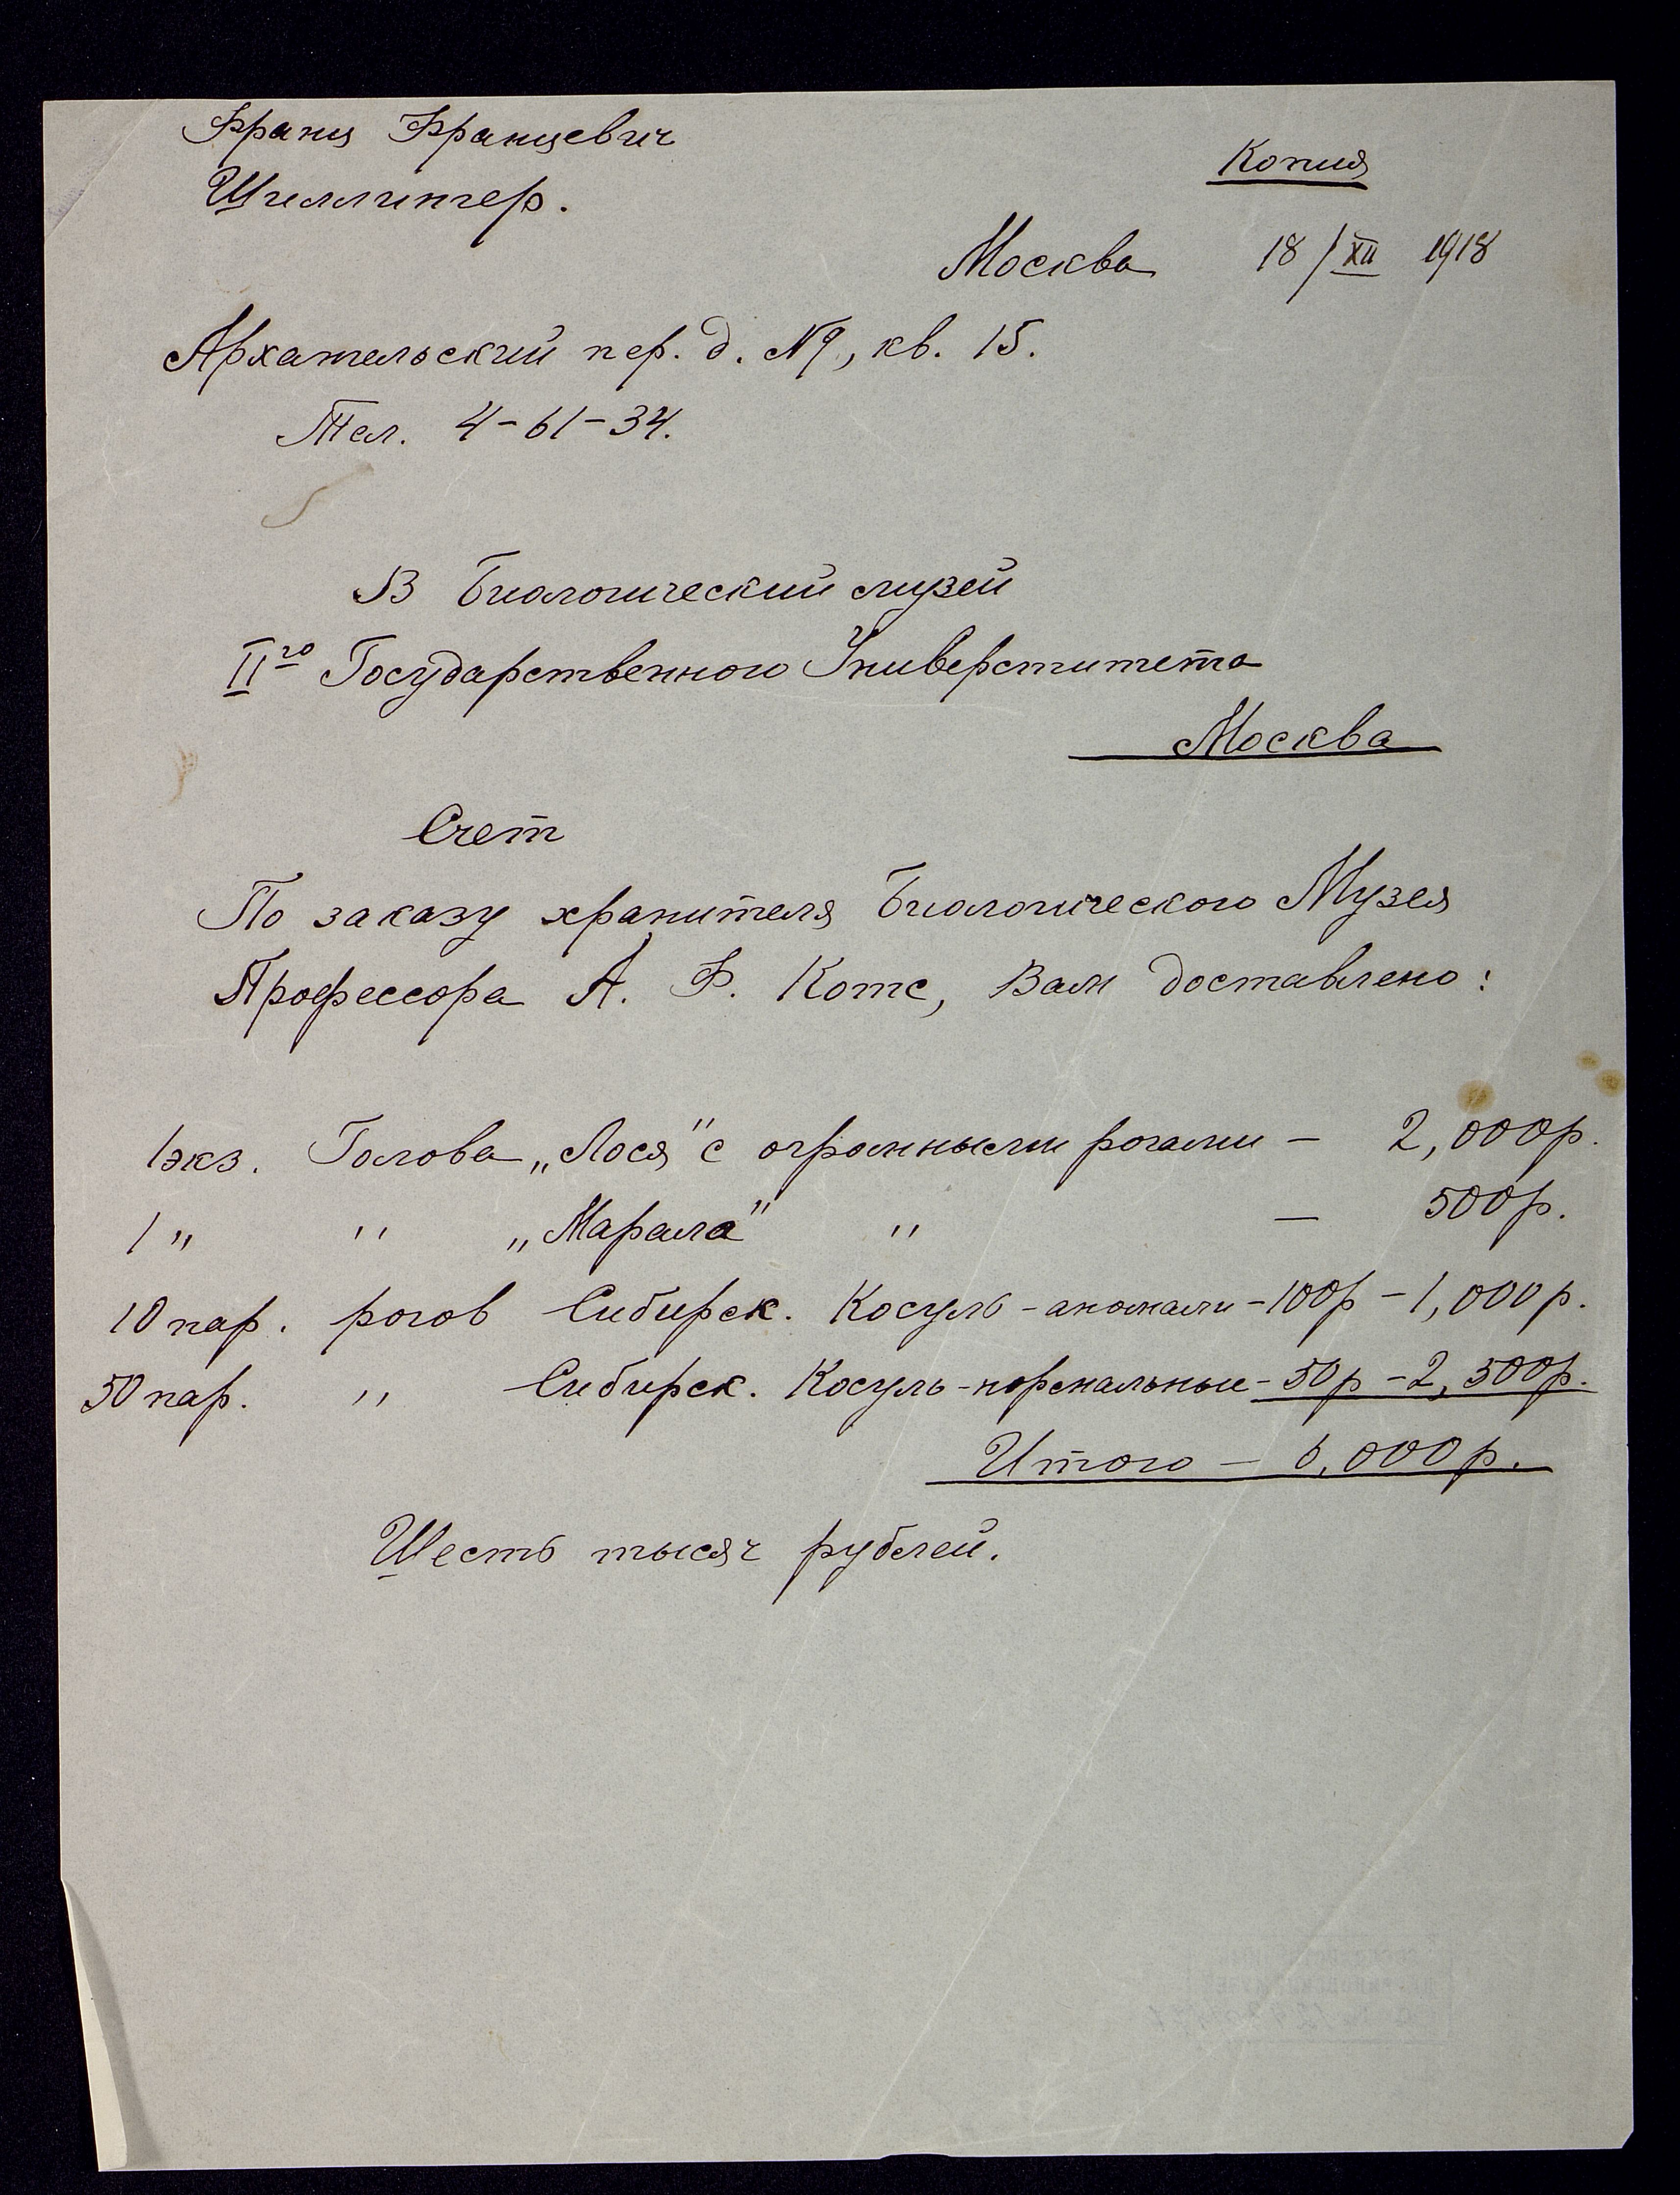 Франц Францевич
Шиллингер.
Копия
Москва 18/XII 1918
Архангельский пер. д. №9, кв. 15.
Тел. 4-61-34.
В Биологический музей
IIго Государственного Универститета
Москва
Счет
По заказу хранителя Биологического Музея
Профессора А. Ф. Котс, Вам доставлено:
1 экз. Голова „Лося" с огромными рогами — 2,000р.
1 " " „Марала" " — 500р.
10 пар. рогов Сибирск. Косуль - аномали - 100р - 1,000р.
50 пар. " Сибирск. Косуль - нормальные - 50р - 2,500р.
Итого — 6,000р.
Шесть тысяч рублей.